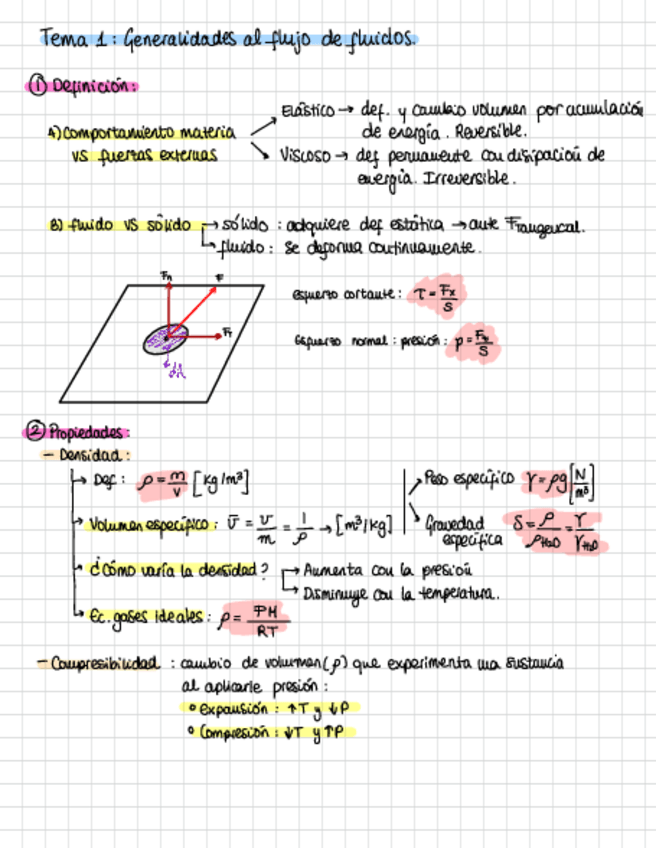 Tema 1: Generalidades al flujo de fluidos.
① Definición:
A) Comportamiento materia vs fuerzas externas
Elástico → def. y cambio volumen por acumulación
de energía. Reversible.
Viscoso → def permanente con disipación de
energía. Irreversible.
B) fluido vs sólido → sólido : adquiere def estática → ante Ftangencial.
↳ fluido : se deforma continuamente.
Fn F
Ft
dA
esfuerzo cortante : τ = Fx/S
esfuerzo normal : presión : p = FN/S
② Propiedades:
- Densidad :
→ Def : ρ = m/V [kg/m³]
→ Peso específico γ = ρg [N/m³]
→ Volumen específico : v̄ = v/m = 1/ρ → [m³/kg]
→ Gravedad específica S = ρ/ρH₂O = γ/γH₂O
→ ¿Cómo varía la densidad? → Aumenta con la presión
↳ Disminuye con la temperatura.
↳ Ec. gases ideales : ρ = PM/RT
- Compresibilidad : cambio de volumen (ρ) que experimenta una sustancia
al aplicarle presión :
• Expansión : ↑T y ↓P
• Compresión : ↓T y ↑P